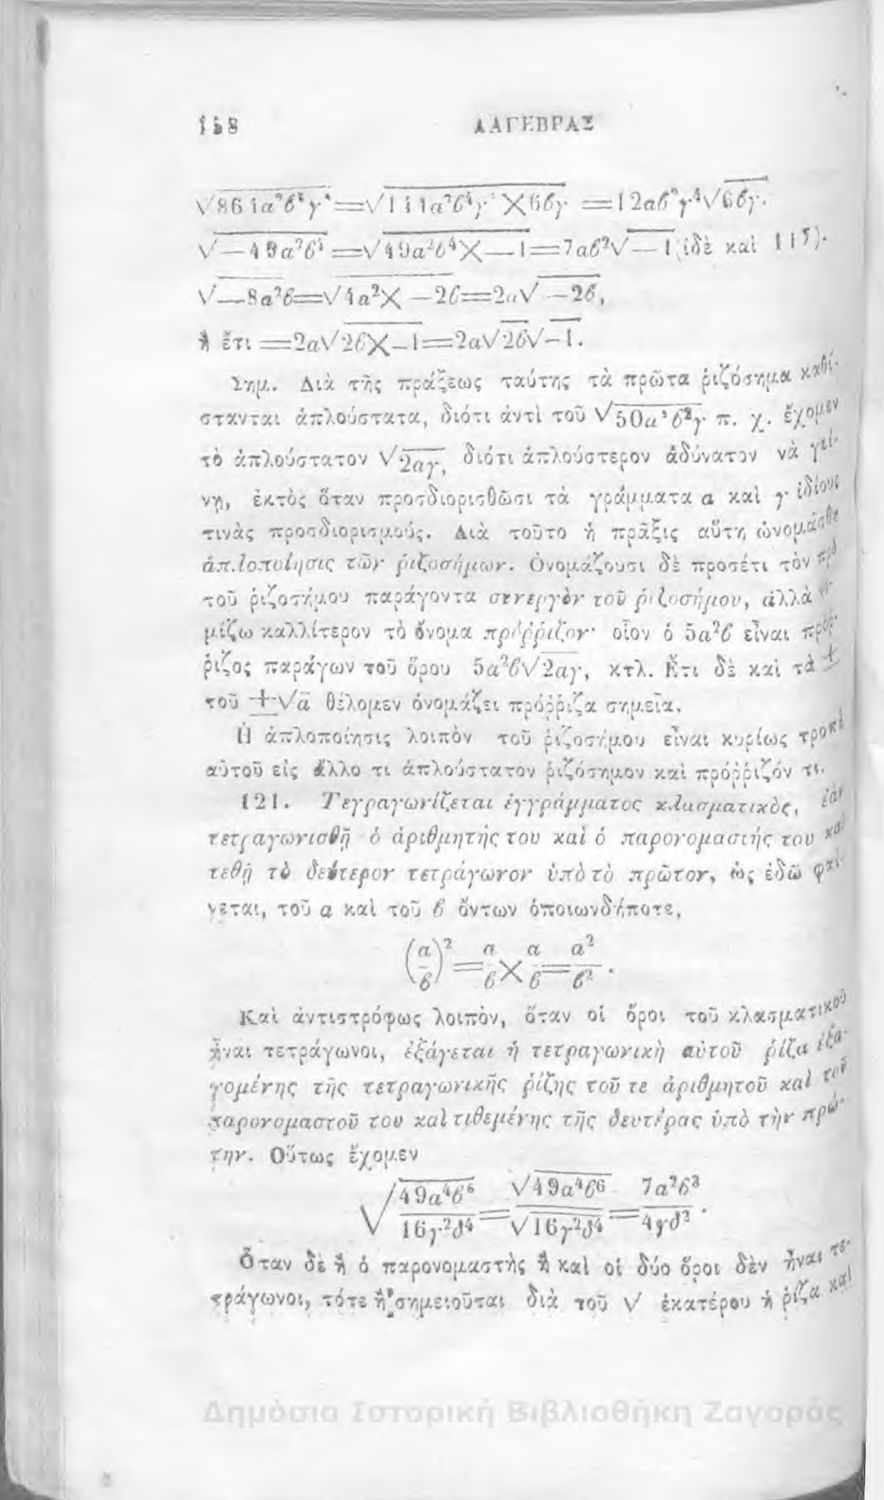 ΑΛΓΕΒΡΑΣ
√−8α²β=√4α²×−2β=2α√−2β,
ἢ ἔτι =2α√2β×−1=2α√2β√−1.
Σημ. Διὰ τῆς πράξεως ταύτης τὰ πρῶτα ῥιζόσημα καθί-
στανται ἁπλούστατα, διότι ἀντὶ τοῦ √50α³β²γ π. χ. ἔχομεν
τὸ ἁπλούστατον √2αγ, διότι ἁπλούστερον ἀδύνατον νὰ γεί-
νῃ, ἐκτὸς ὅταν προσδιορισθῶσι τὰ γράμματα α καὶ γ ἰδίους
τινὰς προσδιορισμούς. Διὰ τοῦτο ἡ πρᾶξις αὕτη ὠνομάσθη
ἁπλοποίησις τῶν ῥιζοσήμων. Ὀνομάζουσι δὲ προσέτι τὸν πρὸ
τοῦ ῥιζοσήμου παράγοντα συνεργὸν τοῦ ῥιζοσήμου, ἀλλὰ
μίζω καλλίτερον τὸ ὄνομα πρόῤῥιζον· οἷον ὁ 5α²β εἶναι πρόρ-
ῥιζος παράγων τοῦ ὅρου 5α²β√2αγ, κτλ. Ἔτι δὲ καὶ τὰ ±
τοῦ ±√α θέλομεν ὀνομάζει πρόῤῥιζα σημεῖα.
Ἡ ἁπλοποίησις λοιπὸν τοῦ ῥιζοσήμου εἶναι κυρίως τροπὴ
αὐτοῦ εἰς ἄλλο τι ἁπλούστατον ῥιζόσημον καὶ πρόῤῥιζόν τι.
121. Τετραγωνίζεται ἐγγράμματος κλασματικὸς, ἐὰν
τετραγωνισθῇ ὁ ἀριθμητής του καὶ ὁ παρονομαστής του καὶ
τεθῇ τὸ δεύτερον τετράγωνον ὑπὸ τὸ πρῶτον, ὡς ἐδῶ φαί-
νεται, τοῦ α καὶ τοῦ β ὄντων ὁποιωνδήποτε,
(α/β)²=α/β×α/β=α²/β².
Καὶ ἀντιστρόφως λοιπὸν, ὅταν οἱ ὅροι τοῦ κλασματικοῦ
ἦναι τετράγωνοι, ἐξάγεται ἡ τετραγωνικὴ αὐτοῦ ῥίζα ἐξα-
γομένης τῆς τετραγωνικῆς ῥίζης τοῦ τε ἀριθμητοῦ καὶ τοῦ
παρονομαστοῦ του καὶ τιθεμένης τῆς δευτέρας ὑπὸ τὴν πρώ-
την. Οὕτως ἔχομεν
√49α⁴β⁶/16γ²δ⁴=√49α⁴β⁶/√16γ²δ⁴=7α²β³/4γδ².
Ὅταν δὲ ἢ ὁ παρονομαστὴς ἢ καὶ οἱ δύο ὅροι δὲν ἦναι τε-
τράγωνοι, τότε ἢ σημειοῦται διὰ τοῦ √ ἑκατέρου ἡ ῥίζα καὶ
Δημόσια Ιστορική Βιβλιοθήκη Ζαγοράς